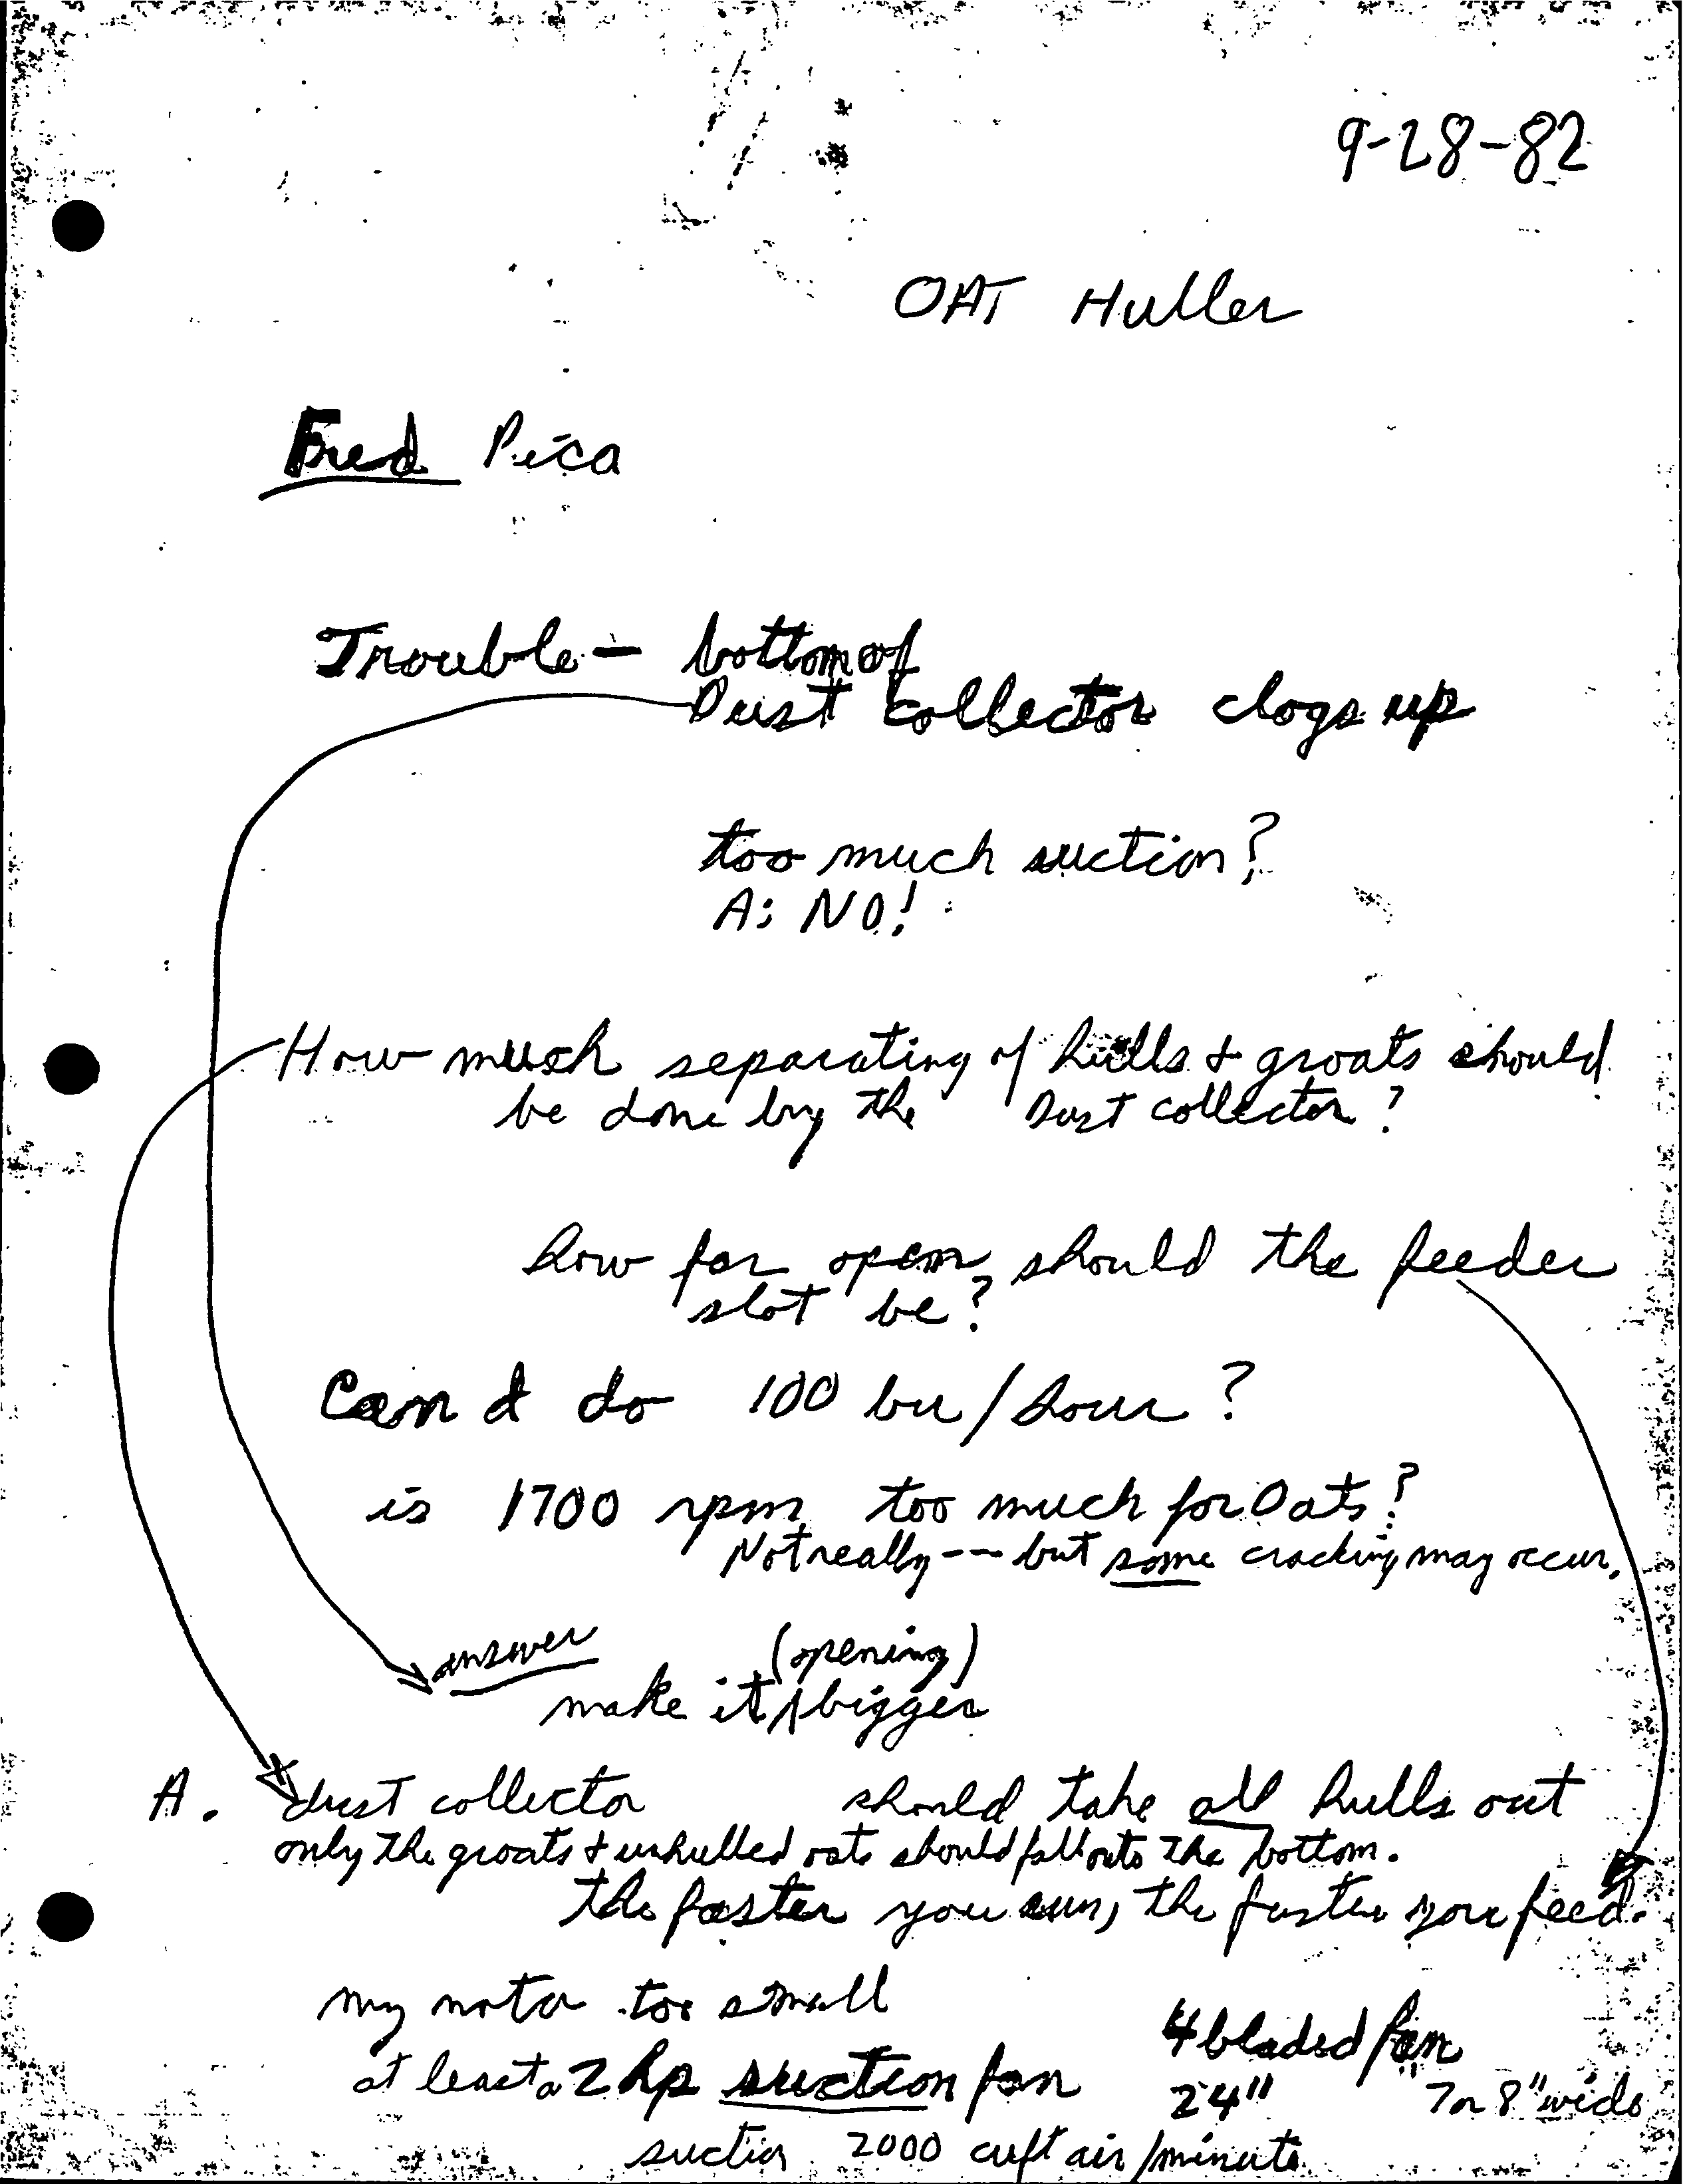 9-28-82
OAT Huller
Fred Pica
Trouble - bottom of
Dust collector clogs up
too much suction?
A: NO!
How much separating of hulls & groats should
be done by the Dust collector?
how far open should the feeder
slot be?
Can I do 100 bu/hour?
is 1700 rpm too much for Oats?
Not really -- but some cracking may occur.
answer
(opening)
make it bigger
A. dust collector should take all hulls out
only the groats & unhulled oats should fall out the bottom.
the faster you run, the faster you feed.
my motor too small
4 bladed fan
at least a 2 hp suction fan
24" 7 or 8" wide
suction 2000 cuft air/minute